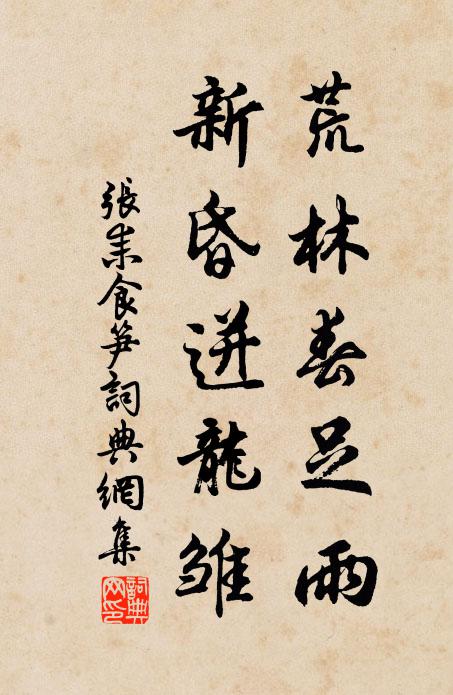 荒林春足雨
新昏迸龍雏
張耒食笋詞典網集
詞典网印